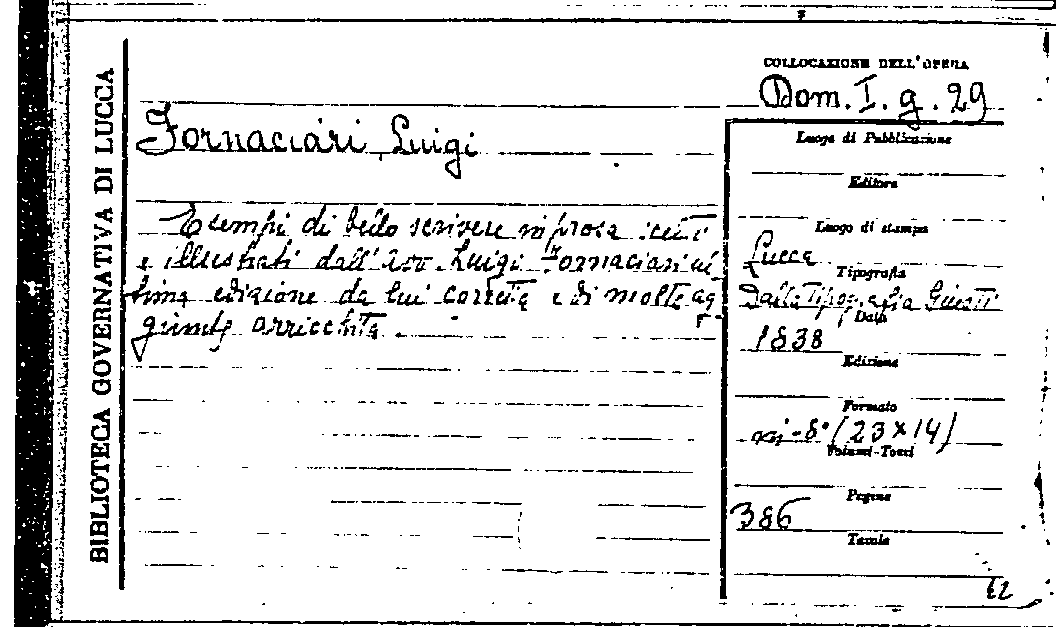 BIBLIOTECA GOVERNATIVA DI LUCCA
Fornaciari, Luigi
Esempi di bello scrivere in prosa scelti
e illustrati dall'Avv. Luigi Fornaciari ul
tima edizione da lui corretta e di molte ag
giunte arricchita.
COLLOCAZIONE DELL'OPERA
Dom. I. g. 29
Luogo di Pubblicazione
Editore
Luogo di stampa
Lucca
Tipografia
Dalla Tipografia Giusti
Data
1838
Edizione
Formato
in-8° (23 x 14)
Volumi-Tomi
Pagine
386
Tavole